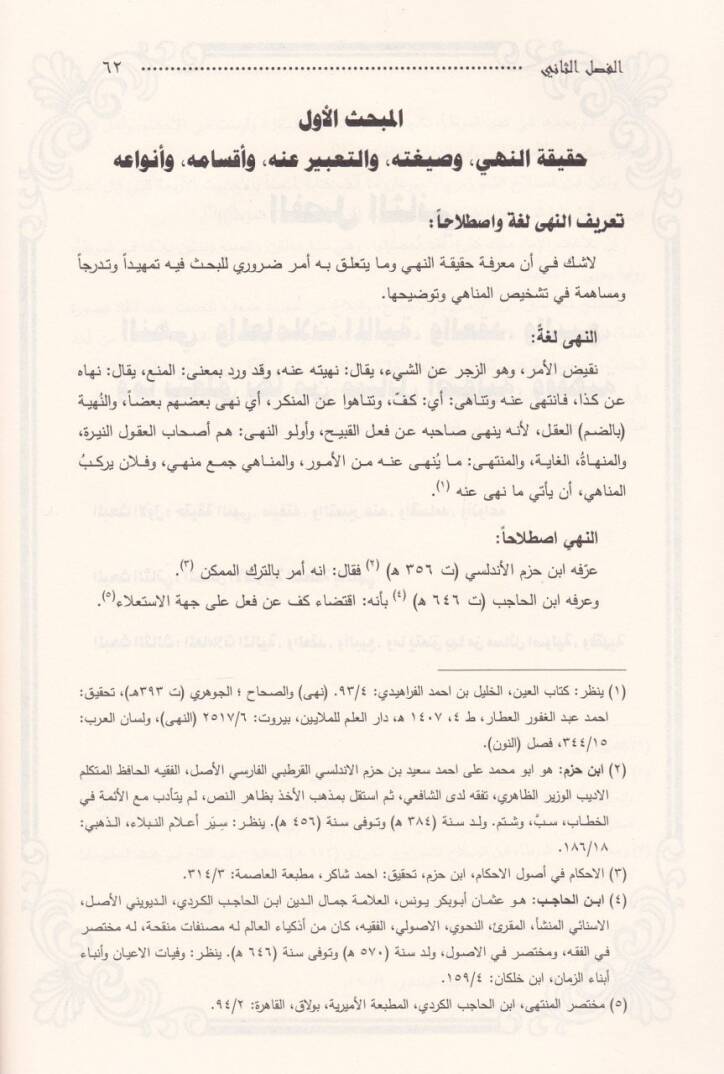 الفصل الثاني ............................................................ ٦٢
المبحث الأول
حقيقة النهي، وصيغته، والتعبير عنه، وأقسامه، وأنواعه
تعريف النهى لغة واصطلاحاً:
لاشك في أن معرفة حقيقة النهي وما يتعلق به أمر ضروري للبحث فيه تمهيداً وتدرجاً
ومساهمة في تشخيص المناهي وتوضيحها.
النهى لغةً:
نقيض الأمر، وهو الزجر عن الشيء، يقال: نهيته عنه، وقد ورد بمعنى: المنع، يقال: نهاه
عن كذا، فانتهى عنه وتناهى: أي: كفّ، وتناهوا عن المنكر، أي نهى بعضهم بعضاً، والنُهية
(بالضم) العقل، لأنه ينهى صاحبه عن فعل القبيح، وأولو النهى: هم أصحاب العقول النيرة،
والمنهاةُ، الغاية، والمنتهى: ما يُنهى عنه من الأمور، والمناهي جمع منهي، وفلان يركبُ
المناهي، أن يأتي ما نهى عنه (١).
النهي اصطلاحاً:
عرّفه ابن حزم الأندلسي (ت ٣٥٦ ه) (٢) فقال: انه أمر بالترك الممكن (٣).
وعرفه ابن الحاجب (ت ٦٤٦ ه) (٤) بأنه: اقتضاء كف عن فعل على جهة الاستعلاء(٥).
(١) ينظر: كتاب العين، الخليل بن احمد الفراهيدي: ٩٣/٤. (نهى) والصحاح ؛ الجوهري (ت ٣٩٣ه)، تحقيق:
احمد عبد الغفور العطار، ط ٤، ١٤٠٧ ه، دار العلم للملايين، بيروت: ٢٥١٧/٦ (النهى)، ولسان العرب:
٣٤٤/١٥، فصل (النون).
(٢) ابن حزم: هو ابو محمد على احمد سعيد بن حزم الاندلسي القرطبي الفارسي الأصل، الفقيه الحافظ المتكلم
الاديب الوزير الظاهري، تفقه لدى الشافعي، ثم استقل بمذهب الأخذ بظاهر النص، لم يتأدب مع الأئمة في
الخطاب، سبَّ، وشتم. ولد سنة (٣٨٤ ه) وتوفى سنة (٤٥٦ ه). ينظر: سِيَر أعلام النبلاء، الذهبي:
١٨٦/١٨.
(٣) الاحكام في أصول الاحكام، ابن حزم، تحقيق: احمد شاكر، مطبعة العاصمة: ٣١٤/٣.
(٤) ابن الحاجب: هو عثمان أبوبكر يونس، العلامة جمال الدين ابن الحاجب الكردي، الديويني الأصل،
الاسنائي المنشأ، المقرئ، النحوي، الاصولي، الفقيه، كان من أذكياء العالم له مصنفات منقحة، له مختصر
في الفقه، ومختصر في الاصول، ولد سنة (٥٧٠ ه) وتوفى سنة (٦٤٦ ه). ينظر: وفيات الاعيان وأنباء
أبناء الزمان، ابن خلكان: ١٥٩/٤.
(٥) مختصر المنتهى، ابن الحاجب الكردي، المطبعة الأميرية، بولاق، القاهرة: ٩٤/٢.